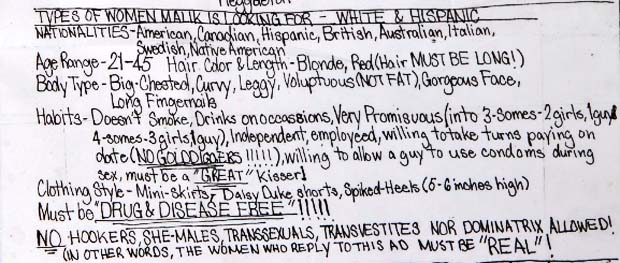 Reggaeton
TYPES OF WOMEN MALIK IS LOOKING FOR - WHITE & HISPANIC
NATIONALITIES - American, Canadian, Hispanic, British, Australian, Italian,
Swedish, Native American
Age Range - 21-45 Hair Color & Length - Blonde, Red (Hair MUST BE LONG!)
Body Type - Big-Chested, Curvy, Leggy, Voluptuous (NOT FAT), Gorgeous Face,
Long Fingernails
Habits - Doesn't Smoke, Drinks on occassions, Very Promisuous (into 3-somes-2 girls, 1 guy
4-somes-3 girls, 1 guy), Independent, employeed, willing to take turns paying on
date (NO GOLDDIGGERS !!!!!), willing to allow a guy to use condoms during
sex, must be a "GREAT" Kisser!
Clothing Style - Mini-Skirts, Daisy Duke shorts, Spiked-Heels (5-6 inches high)
Must be "DRUG & DISEASE FREE" !!!!!
NO HOOKERS, SHE-MALES, TRANSSEXUALS, TRANSVESTITES NOR DOMINATRIX ALLOWED!
(IN OTHER WORDS, THE WOMEN WHO REPLY TO THIS AD MUST BE "REAL"!